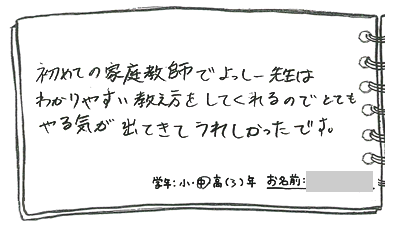 初めての家庭教師でよっしー先生は
わかりやすい教え方をしてくれるのでとても
やる気が出てきてうれしかったです。
学年:小・中 高(3)年 お名前: